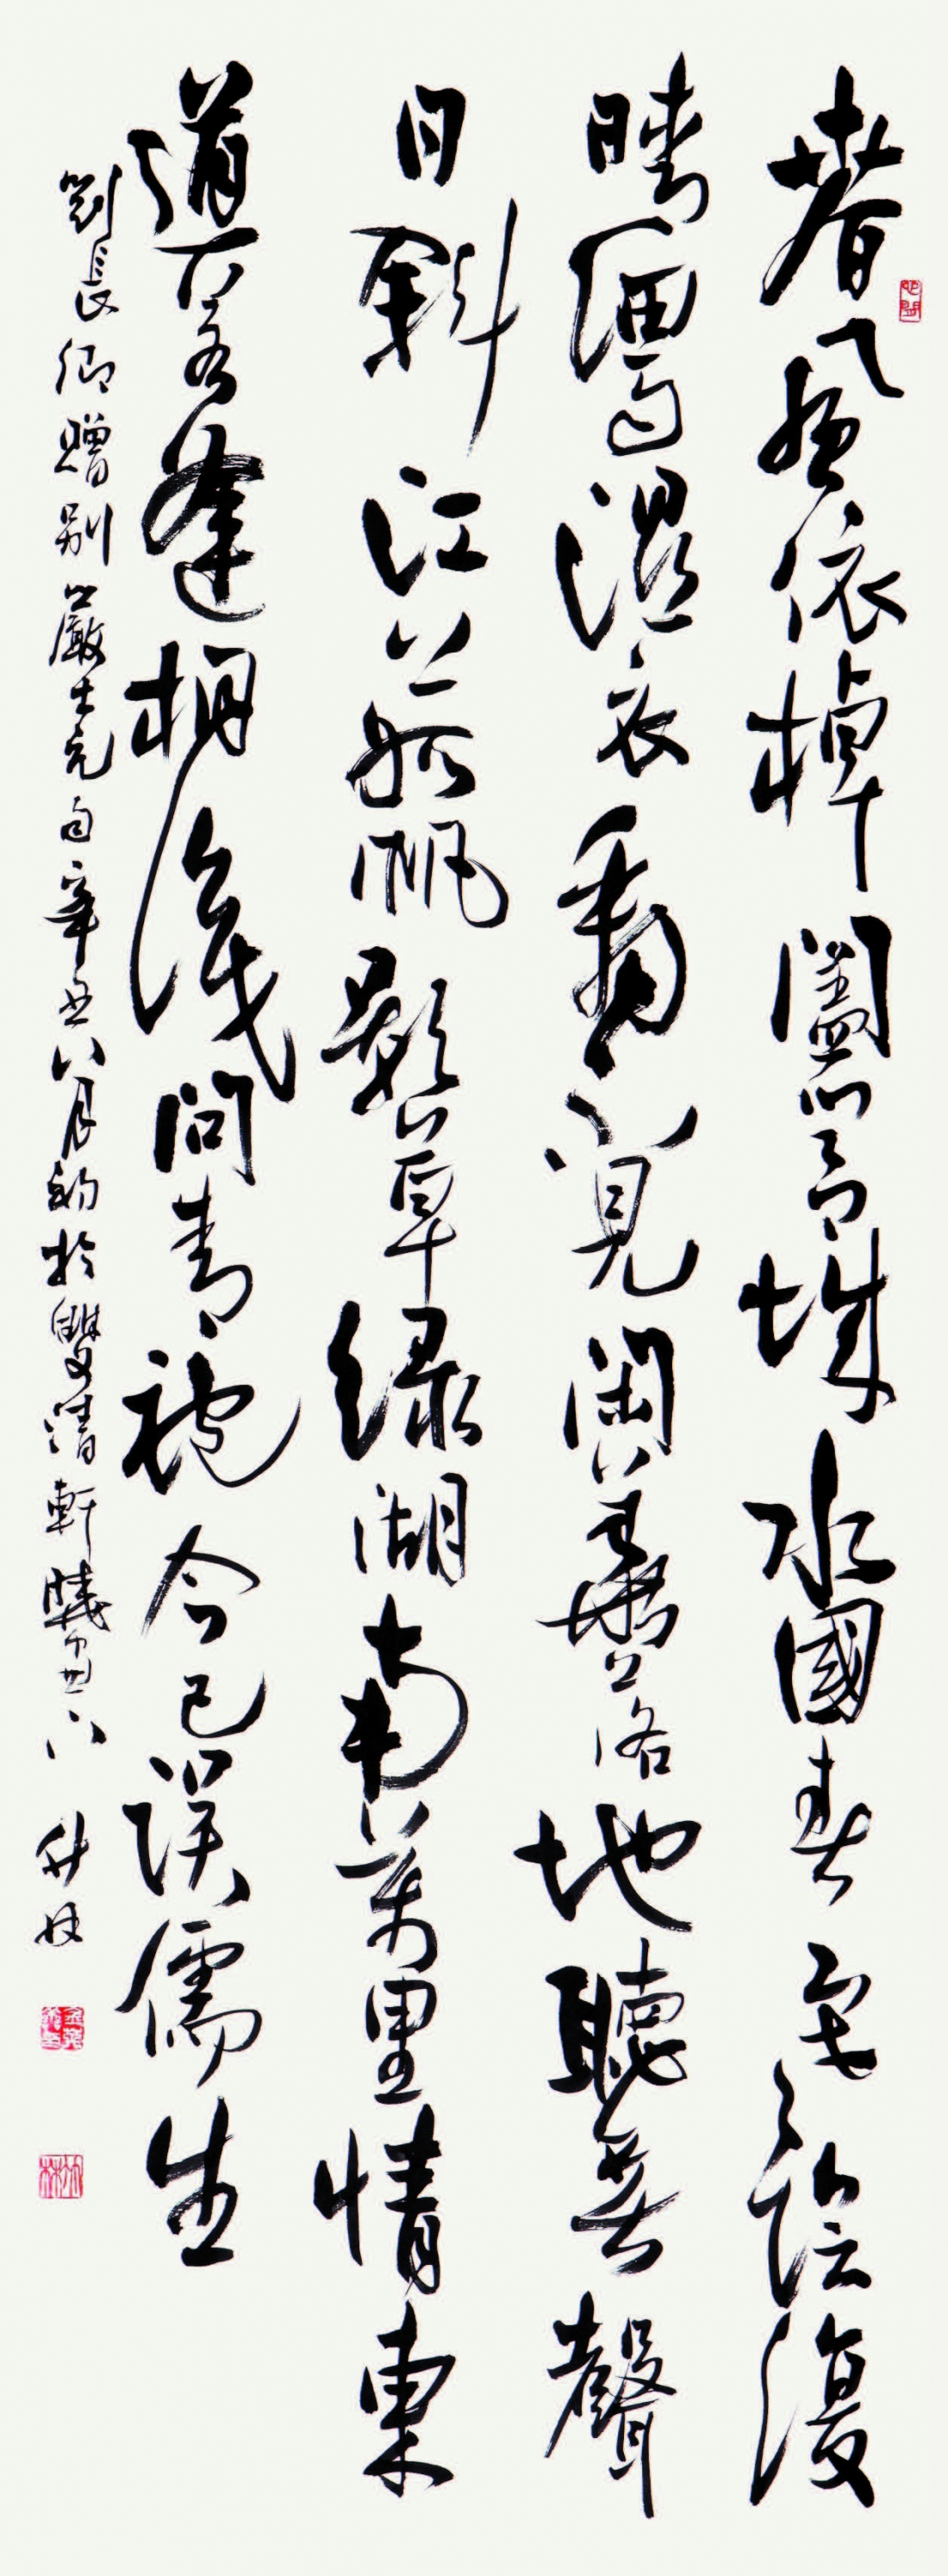 春風依棹闔閭城水國春寒陰復
晴細雨濕衣看不見閑花落地聽無聲
日斜江上孤帆影草綠湖南萬里情東
道若逢相識問青袍今已誤儒生
劉長卿贈別嚴士元句辛丑八月初於雙清軒曉窗下